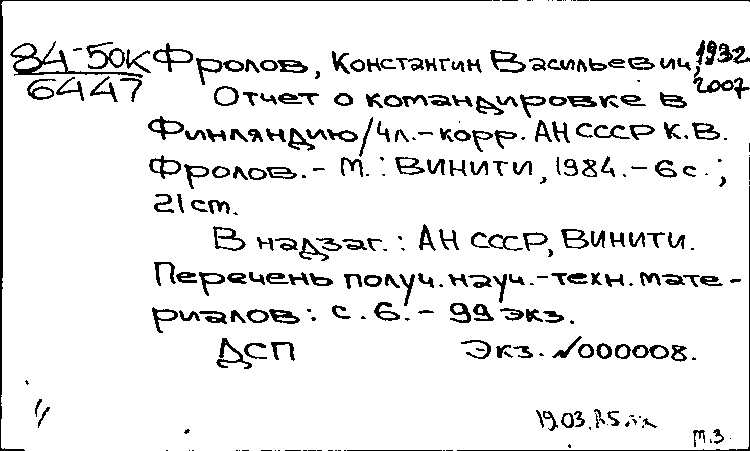 84-50К Фролов, Константин Васильевич, 1932
6447 2007
Отчет о командировке в
Финляндию/чл.-корр. АН СССР К.В.
Фролов.- М.: ВИНИТИ, 1984.- 6 с.;
21 см.
В надзаг.: АН СССР, ВИНИТИ.
Перечень получ. науч.-техн. мате-
риалов: с. 6.- 99 экз.
ДСП Экз. №000008.
19.03.85
т.3